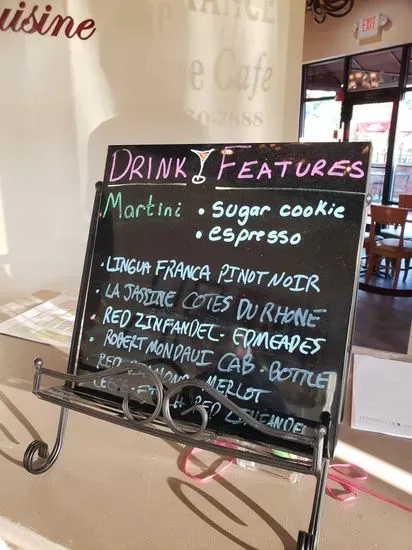 uisine
RANCE
e Cafe
0-7888
EXIT
DRINK FEATURES
Martini • sugar cookie
• espresso
• LINGUA FRANCA PINOT NOIR
• LA JASSINE COTES DU RHONE
• RED ZINFANDEL - EDMEADES
• ROBERT MONDAVI CAB - BOTTLE
RED MERLOT
RED ZINFANDEL